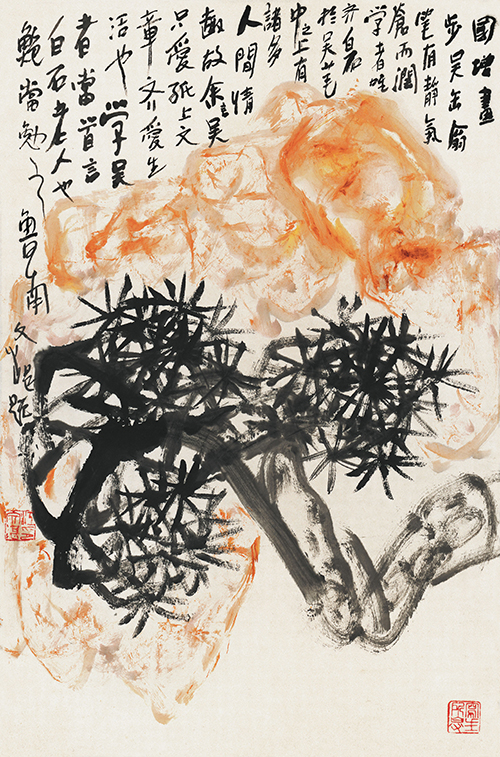 國增畫
步吴缶翁
筆有靜氣
蒼而潤
學者唯
齐白石
於吴
中之上有
諸多
人間情
趣故余言吴
只愛紙上文
章齐愛生
活也學吴
者當首言
白石老人也
當勉之魯南
文題